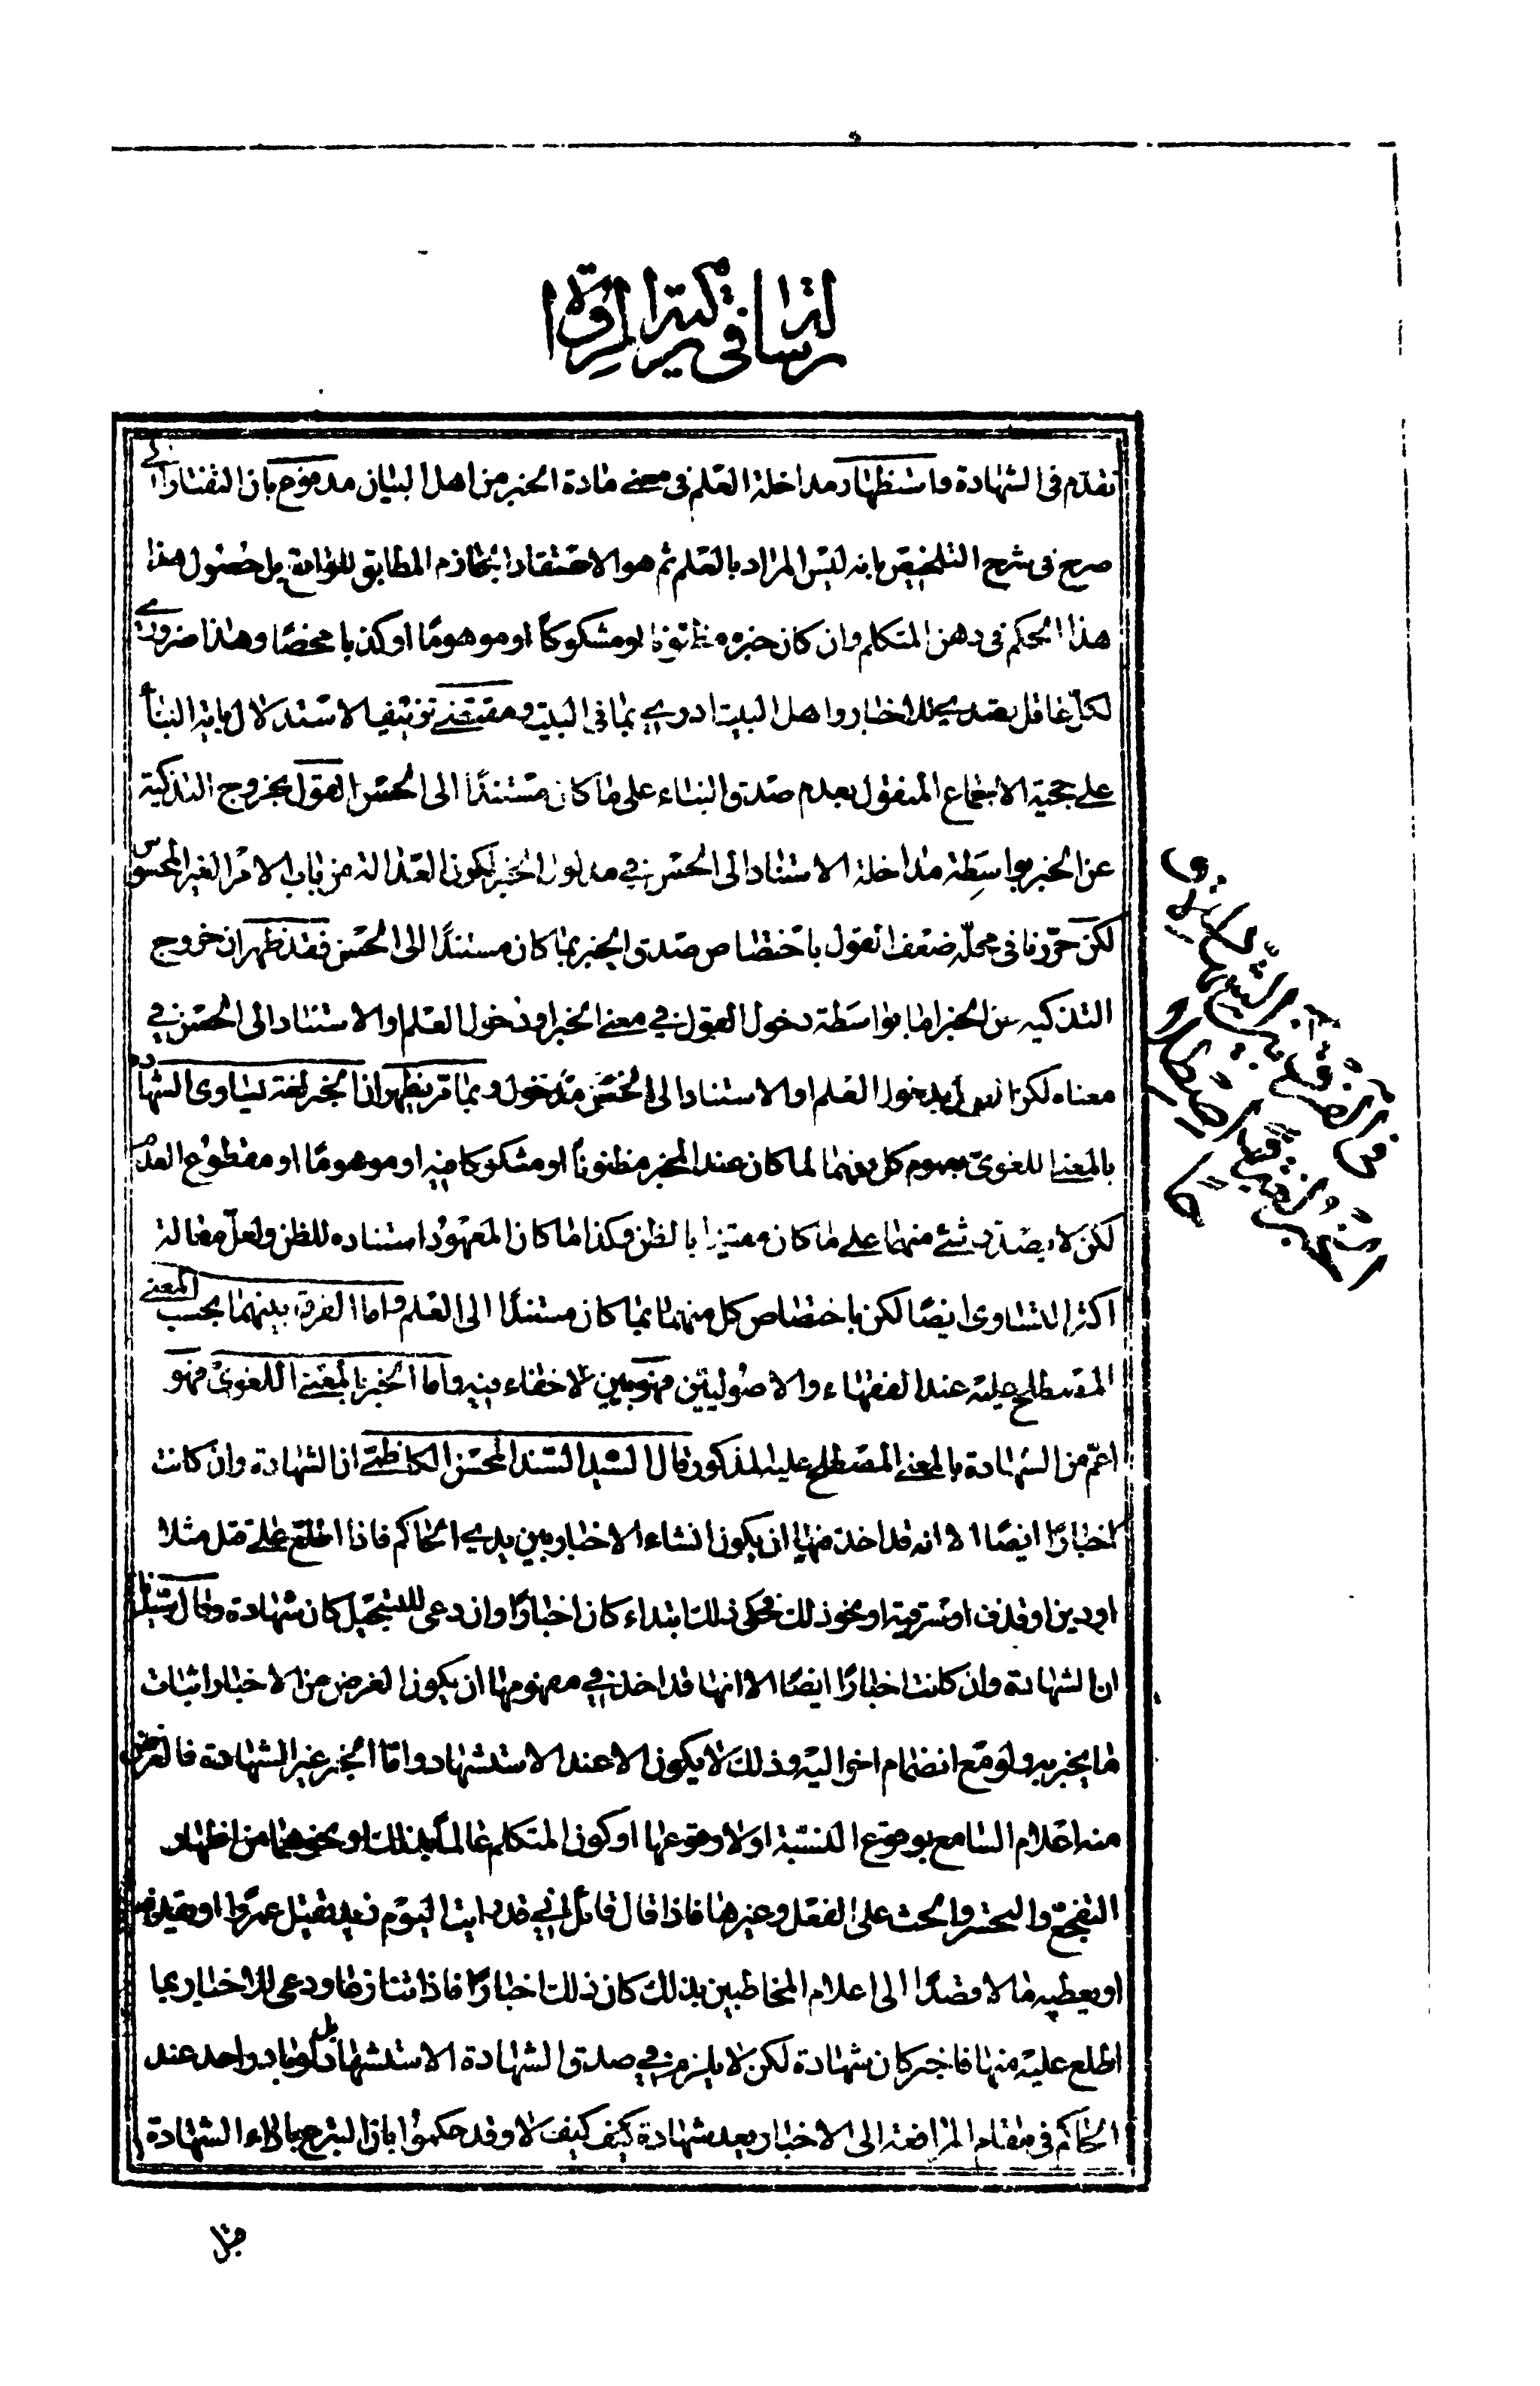 رسالة في تزكية اهل الرواة
تقدم في الشهادة واستظهار مداخلة العلم في معنى مادة الخبر من اهل البيان مدفوع بان التفتازاني
صرح في شرح التلخيص بانه ليس المراد بالعلم ثم هو الاعتقاد الجازم المطابق للواقع بل حصول هذا
هذا الحكم في ذهن المتكلم وان كان خبره مظنونا او مشكوكا او موهوما او كذبا محضا وهذا ضروري
لكل عاقل يتصدى للاخبار واهل البيت ادرى بما في البيت ومقتضى تزييف الاستدلال باية النبأ
على حجية الاجماع المنقول بعدم صدق النباء على ما كان مستندا الى الحدس القول بخروج التذكية
عن الخبر بواسطة مداخلة الاستناد الى الحس في مدلول الخبر لكون العدالة من باب الامر الغير المحسوس
لكن حررنا في محله ضعف القول باختصاص صدق الخبر بما كان مستندا الى الحس فقد ظهر ان خروج
التذكيه عن الخبر اما بواسطة دخول القول في معنى الخبر او دخول العلم او الاستناد الى الحس في
معناه لكن القول بدخول العلم او الاستناد الى الحس مدخول وبما مر يظهر ان الخبر لغة يساوى الشهادة
بالمعنى اللغوى بعموم كل منهما لما كان عند المخبر مظنونا او مشكوكا فيه او موهوما او مقطوع العدم
لكن لا يصدق شئ منهما على ما كان مقترنا بالظن وكذا ما كان المعهود استناده للظن ولعل مقالة
اكثر التساوى ايضا لكن باختصاص كل منهما بما كان مستندا الى العلم واما الفرق بينهما بحسب المعنى
المصطلح عليه عند الفقهاء والاصوليين فهو بين لا خفاء فيه واما الخبر بالمعنى اللغوى فهو
اعم من الشهادة بالمعنى المصطلح عليه المذكور قال السيد السند المحسن الكاظمى ان الشهادة وان كانت
اخبارا ايضا الا انه قد اخذ فيها ان يكون انشاء الاخبار بين يدى الحاكم فاذا اطلع على قتل مثلا
او دين او قذف او سرقة او نحو ذلك فحكى ذلك ابتداء كان اخبارا وان دعى للتسجيل كان شهادة وقال
ان الشهادة وان كانت اخبارا ايضا الا انها قد اخذ في مفهومها ان يكون الغرض من الاخبار اثبات
ما يخبر به ولو مع انضمام اخر اليه وذلك لا يكون الا عند الاستشهاد واما الخبر غير الشهادة فالغرض
منه اعلام السامع بوقوع النسبة او لا وقوعها او كون المتكلم عالما بذلك او نحوهما من اظهار
التفجع والتحسر والحث على الفعل وغيرها فاذا قال قائل اني قد رايت اليوم زيد يقتل عمروا او
او يعطيه مالا قصدا الى اعلام المخاطبين بذلك كان ذلك اخبارا فاذا تنازعا ودعى للاخبار بما
اطلع عليه منها فاخبر كان شهادة لكن لا يلزم في صدق الشهادة الاستشهاد بل لو بادر واحد عند
الحاكم في مقام المرافعة الى الاخبار يعد شهادة كيف كيف لا وقد حكموا بان التبرع باداء الشهادة
قبل